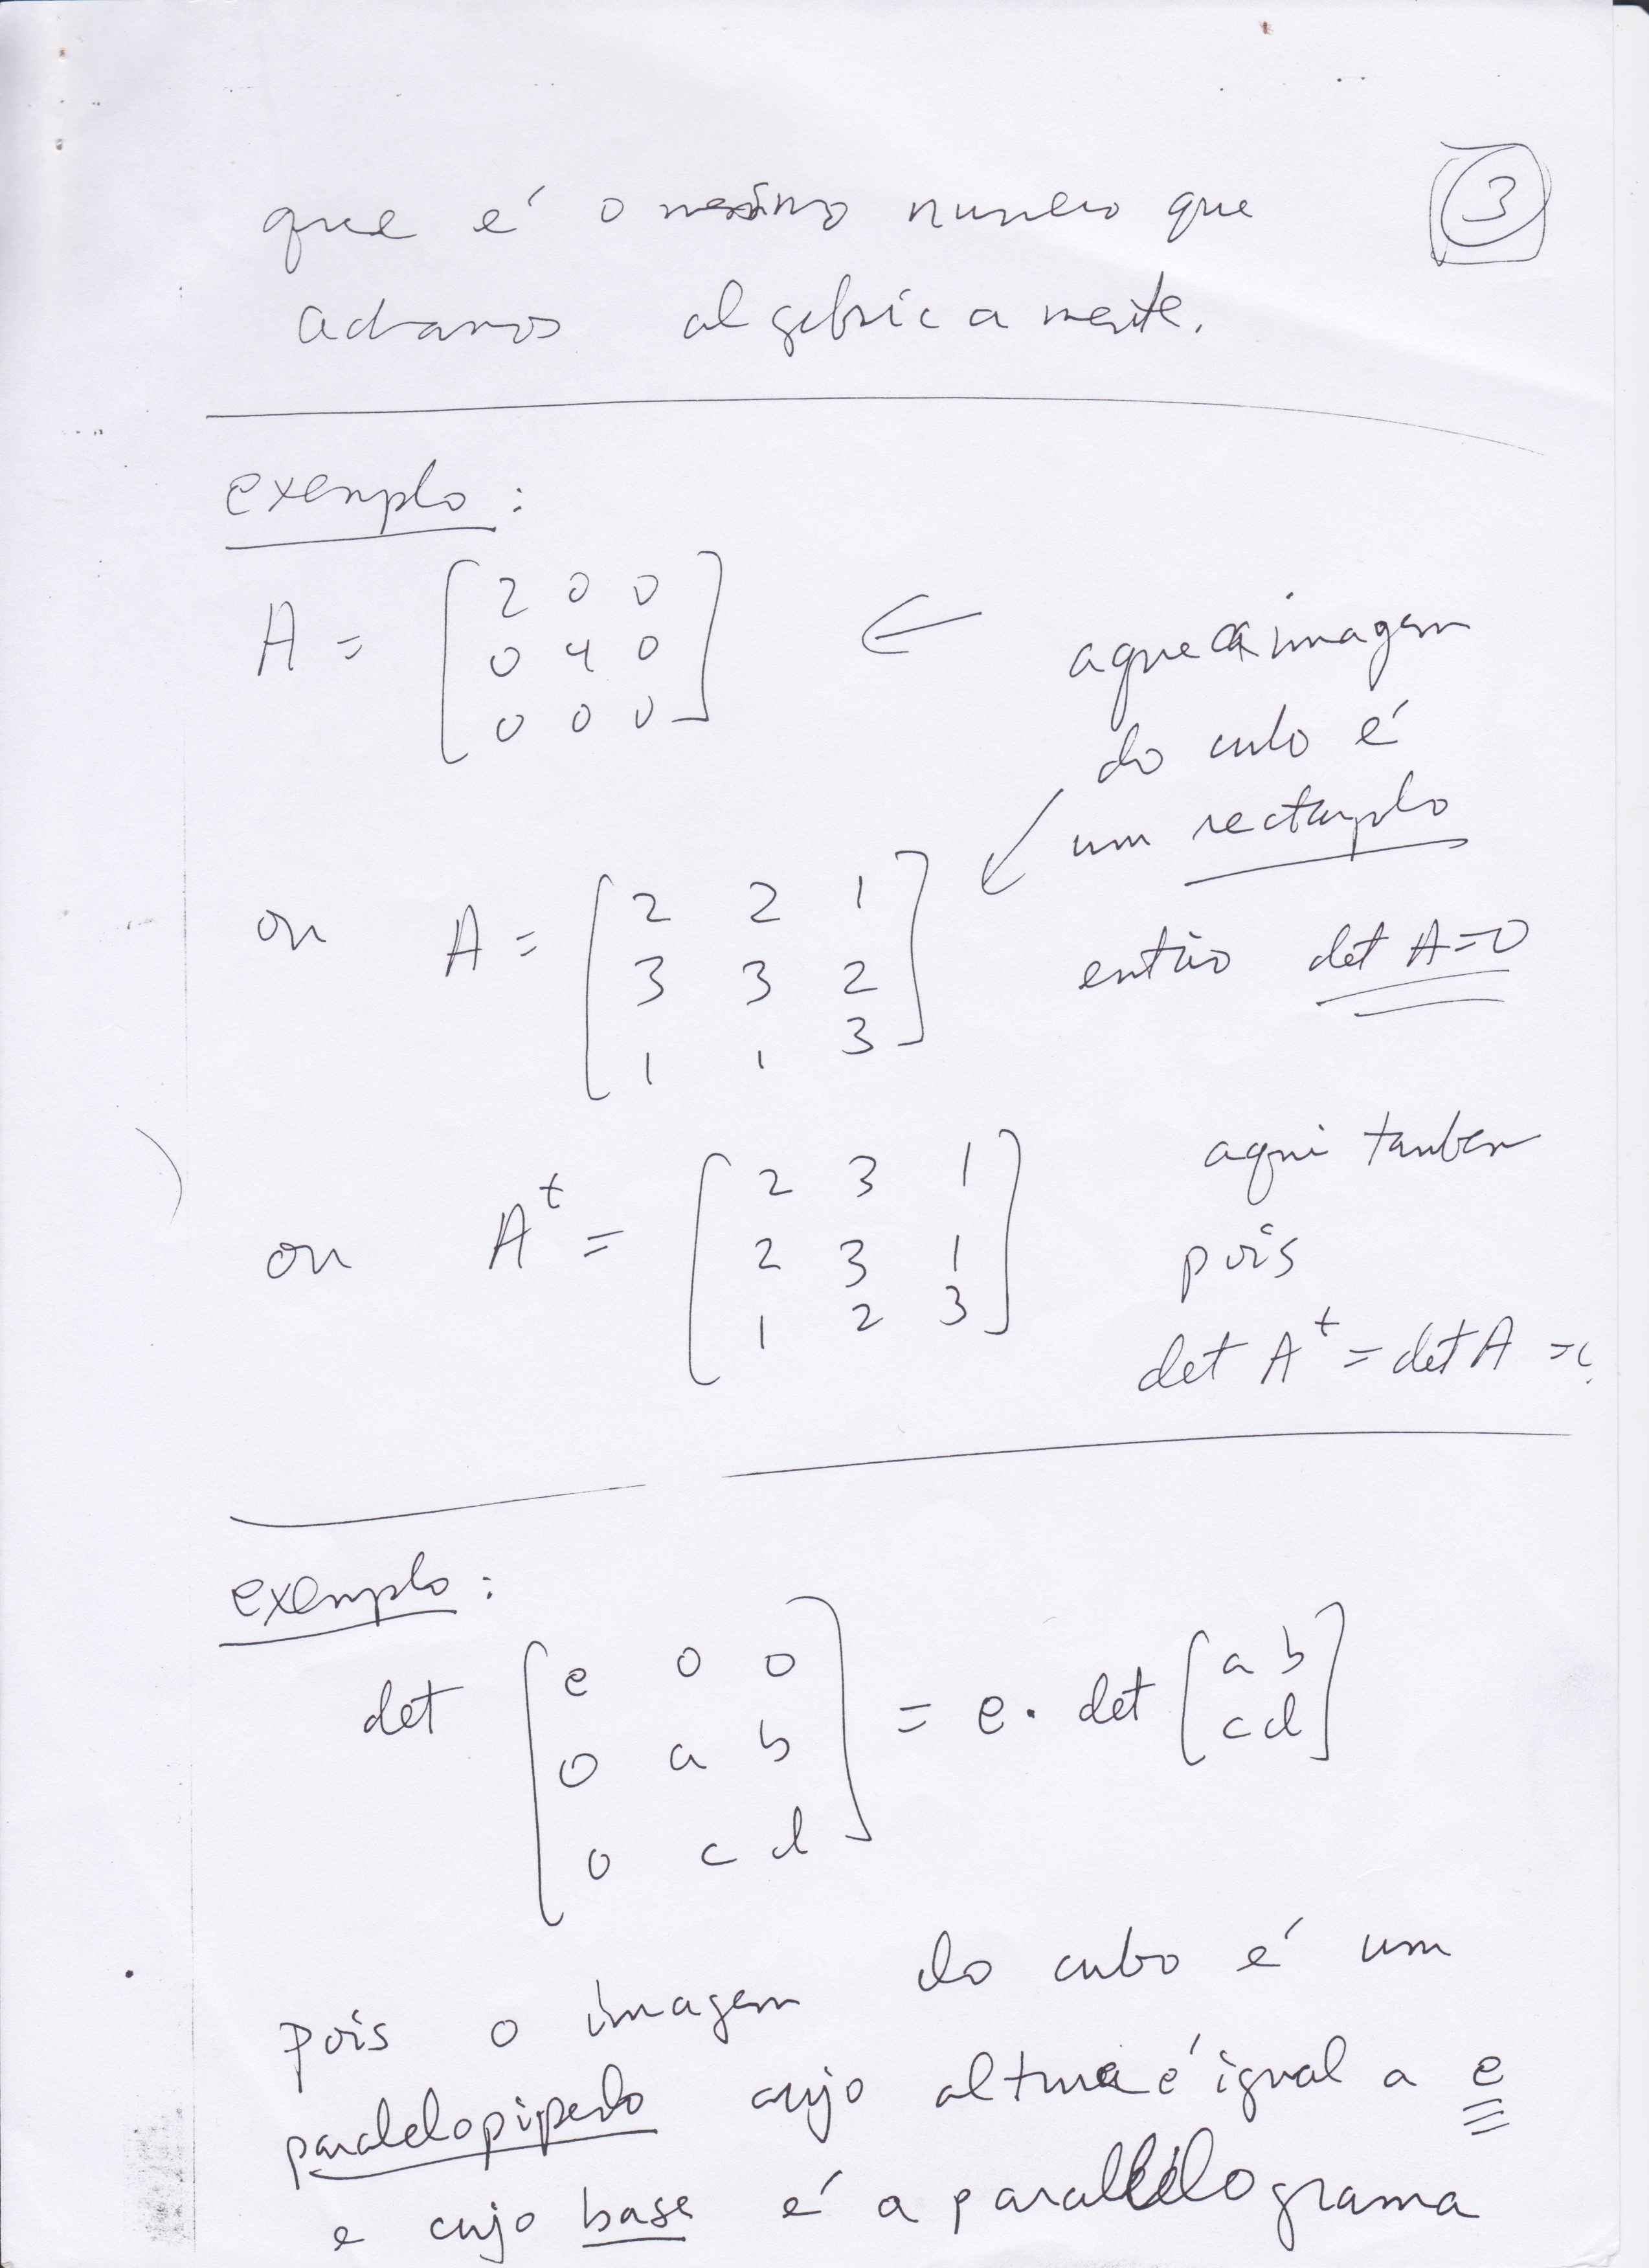 3
que é o mesmo numero que
achamos algebricamente.
exemplo:
A = [ 2 0 0
0 4 0
0 0 0 ]
← aqui a imagem
do cubo é
um rectangulo
ou A = [ 2 2 1
3 3 2
1 1 3 ]
então det A=0
ou A^t = [ 2 3 1
2 3 1
1 2 3 ]
aqui tambem
pois
det A^t = det A =
exemplo:
det [ e 0 0
0 a b
0 c d ] = e · det [ a b
c d ]
pois o imagem do cubo é um
paralelopipedo cujo altura é igual a e
e cujo base é a parallelograma